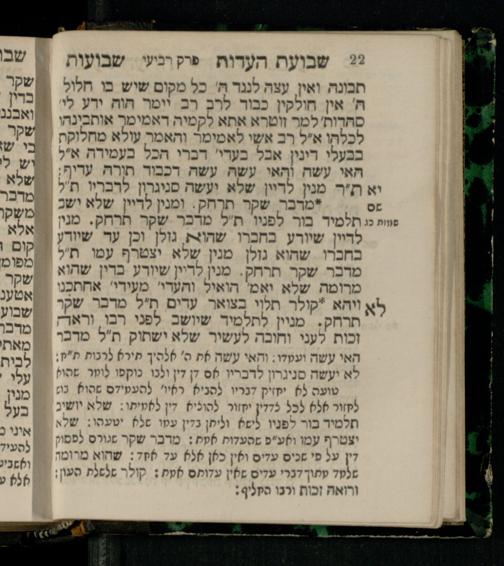 22 שבועת העדות פרק רביעי שבועות
תבונה ואין עצה לנגד ה׳ כל מקום שיש בו חלול
ה׳ אין חולקין כבוד לרב רב יימר הוה ידע לי׳
סהדות׳ למר זוטרא אתא לקמיה דאמימר אותבינהו
לכולהו א״ל רב אשי לאמימר והאמר עולא מחלוקת
בבעלי דינין אבל בעדי׳ דברי הכל בעמידה א״ל
האי עשה והאי עשה עשה דכבוד תורה עדיף:
יא ת״ר מנין לדיין שלא יעשה סניגרון לדבריו ת״ל
שם *מדבר שקר תרחק. ומנין לדיין שלא ישב
שמות כג תלמיד בור לפניו ת״ל מדבר שקר תרחק. מנין
לדיין שיודע בחברו שהוא גזלן וכן עד שיודע
בחברו שהוא גזלן מנין שלא יצטרף עמו ת״ל
מדבר שקר תרחק. מנין לדיין שיודע בדין שהוא
מרומה שלא יאמ׳ הואיל והעדי׳ מעידי׳ אחתכנו
לא ויהא *קולר תלוי בצואר עדים ת״ל מדבר שקר
תרחק. מנויין לתלמיד שיושב לפני רבו וראה
זכות לעני וחובה לעשיר שלא ישתוק ת״ל מדבר
האי עשה ועמדו: והאי עשה את ה׳ אלהיך תירא לרבות ת״ח:
לא יעשה סניגרון לדבריו אם דן דין ולבו נוקפו לומר שהוא
טועה לא יחזיק דבריו להביא ראיו׳ להעמידם שהוא
לחזור אלא לכל צדדין יחזור להוציא דין לאמיתו: שלא יושיב
תלמיד בור לפניו לישא וליתן בדין עמו שלא יטעהו: שלא
יצטרף עמו ואע״פ שהעדות אמת: מדבר שקר שגורם לפסוק
דין על פי שנים עדים ואין כאן אלא עד אחד: שהוא מרומה
שלמד מתוך דברי עדים שאין עדותם אמת: קולר שלשלת העון:
ורואה זכות ורבו החליף: